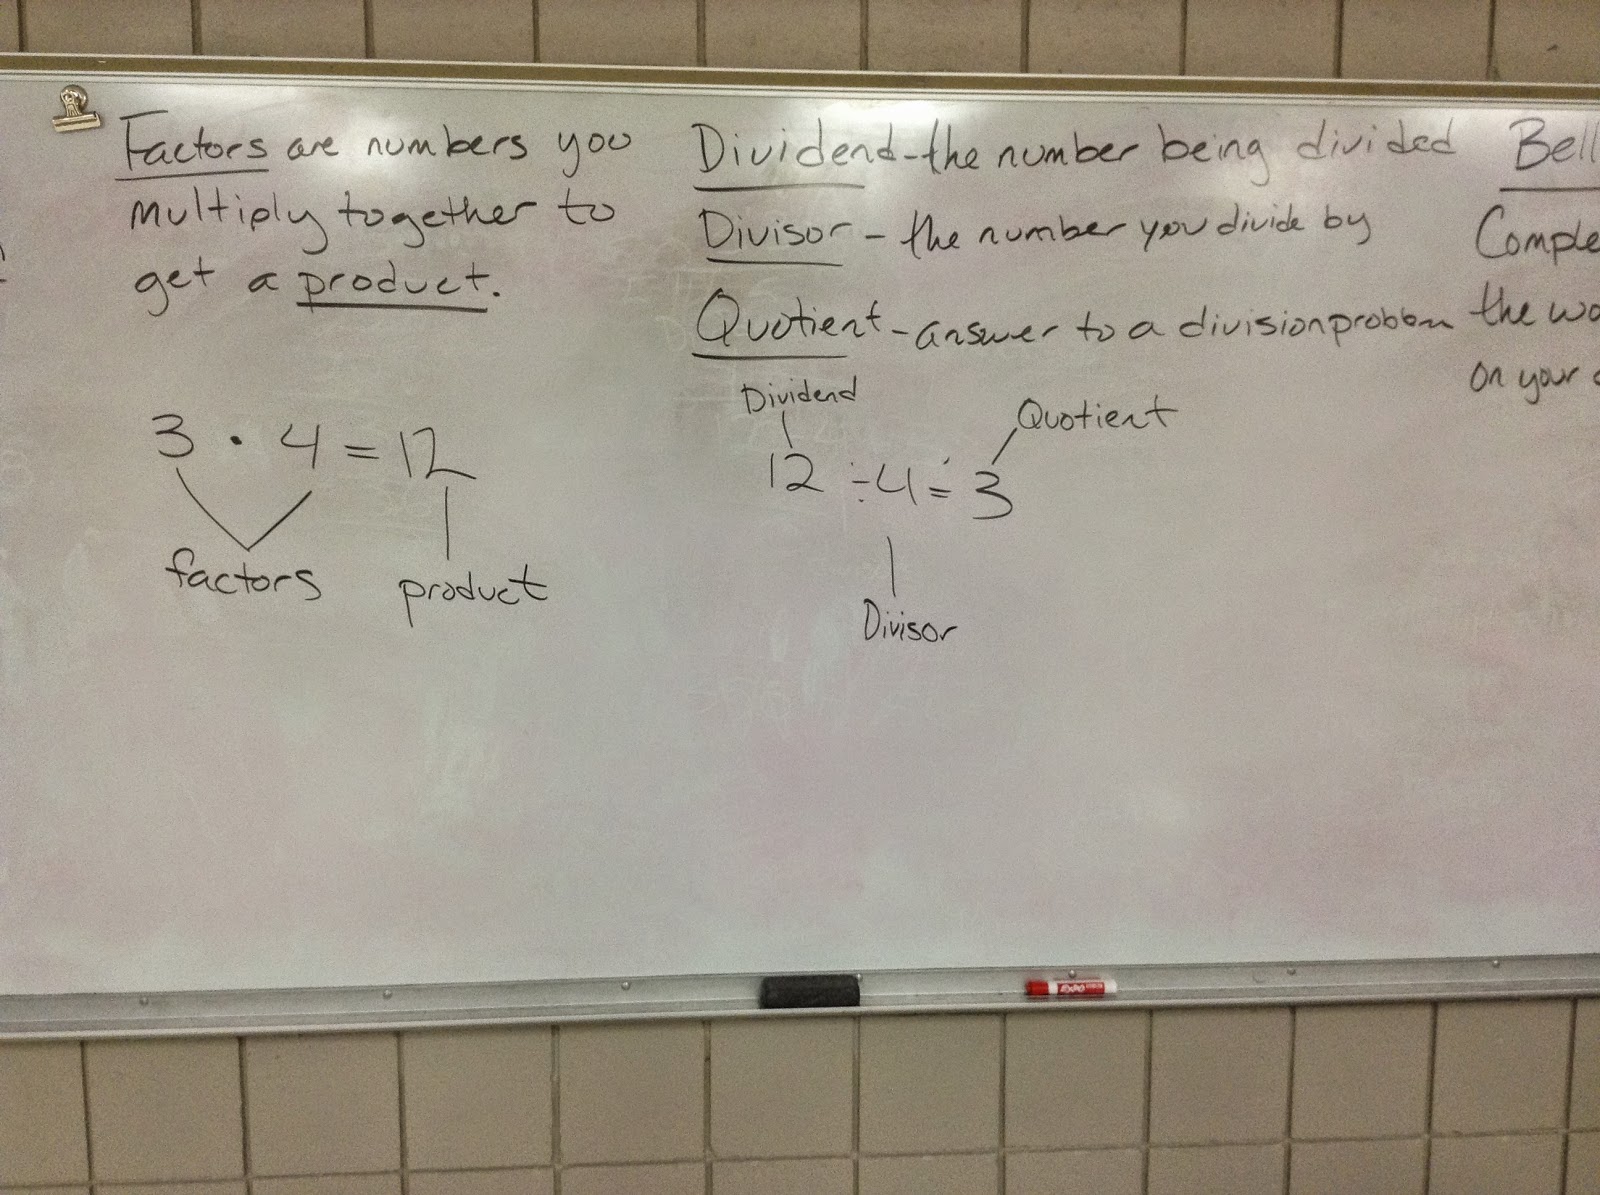 Factors are numbers you
multiply together to
get a product.
3 · 4 = 12
factors
product
Dividend - the number being divided
Divisor - the number you divide by
Quotient - answer to a division problem
Dividend
Quotient
12 ÷ 4 = 3
Divisor
Bell
Comple
the wo
on your
EXPO